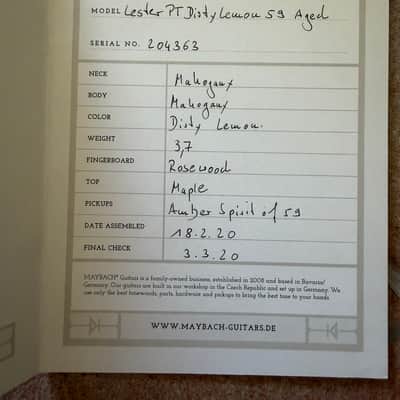 MODEL Lester PT Disty Lemon 59 Aged
SERIAL NO. 204363
NECK Mahogany
BODY Mahogany
COLOR Disty Lemon.
WEIGHT 3,7
FINGERBOARD Rosewood
TOP Maple
PICKUPS Amber Spirit of 59
DATE ASSEMBLED 18.2.20
FINAL CHECK 3.3.20
MAYBACH® Guitars is a family-owned business, established in 2008 and based in Bavaria/
Germany. Our guitars are built in our workshop in the Czech Republic and set up in Germany. We
use only the best tonewoods, parts, hardware and pickups to bring the best tone to your hands.
WWW.MAYBACH-GUITARS.DE